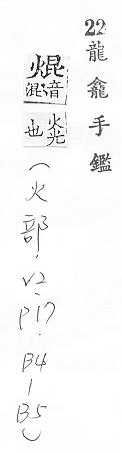 22龍龕手鑑
焜音混火光也(火部.V2.P17.B4-B5)